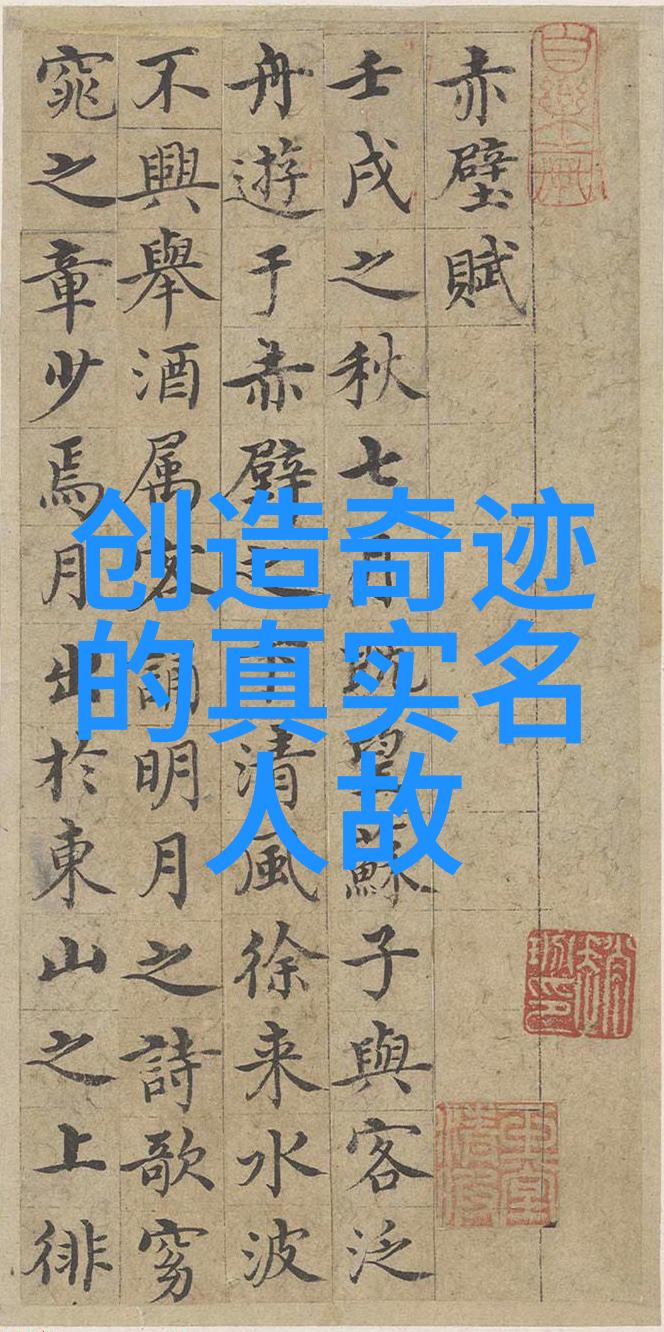 赤壁賦
壬戌之秋七月既望蘇子與客泛
舟遊于赤壁之下清風徐来水波
不興舉酒属客誦明月之詩歌窈
窕之章少焉月出於東山之上徘
创造奇迹
的真实名
人故